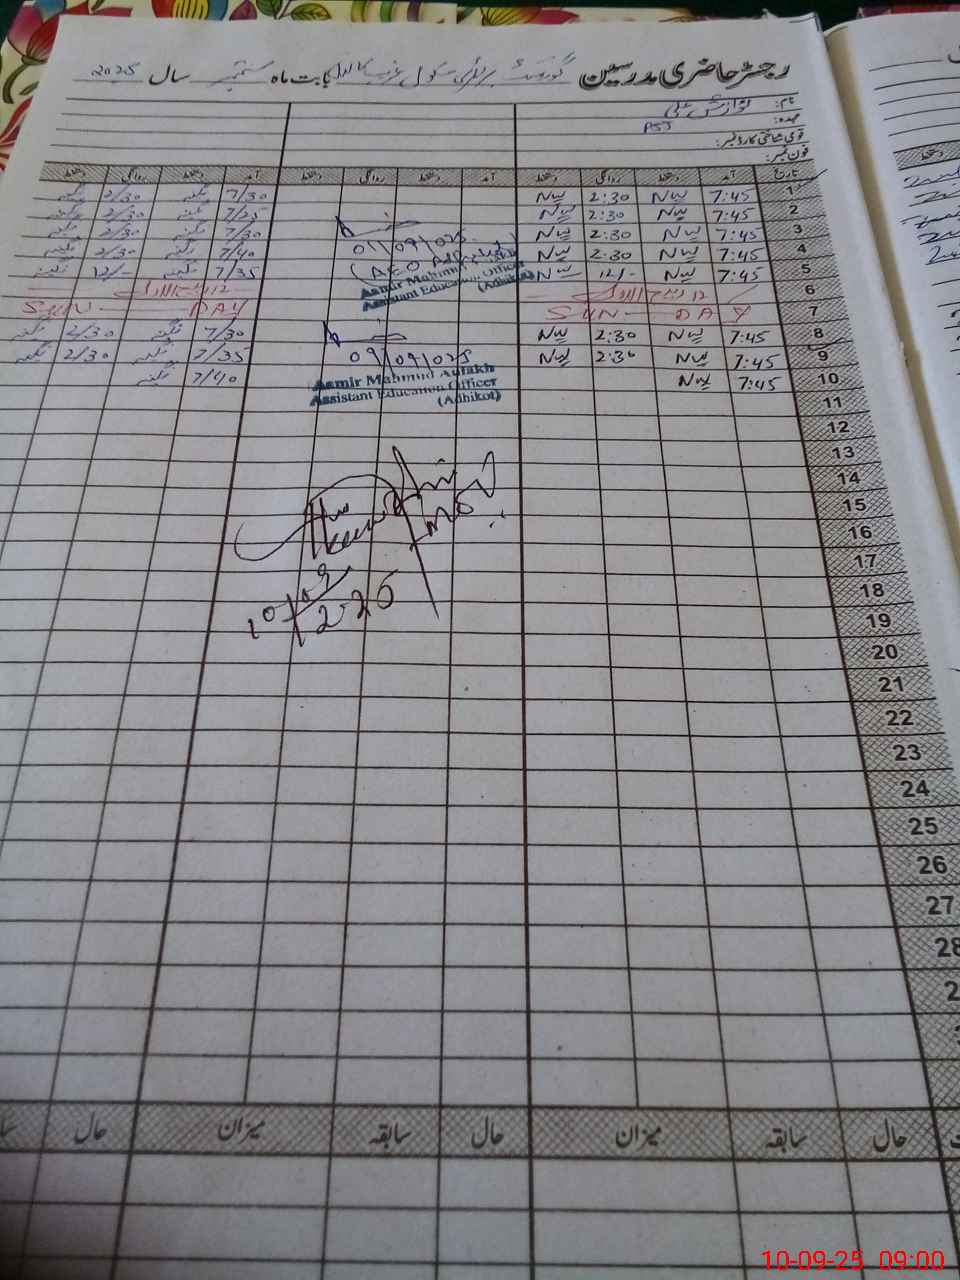 رجسٹر حاضری مدرسین گورنمنٹ پرائمری سکول بابت ماہ ستمبر سال 2025
نام: نوازش علی
عہدہ: PST
قومی شناختی کارڈ نمبر:
فون نمبر:
تاریخ آمد دستخط روانگی دستخط آمد دستخط روانگی دستخط آمد دستخط روانگی دستخط
1 7:45 NW 2:30 NW 7/30 2/30
2 7:45 NW 2:30 NW 7/25 2/30
3 7:45 NW 2:30 NW 7/30 2/30
4 7:45 NW 2:30 NW 7/40 2/30
5 7:45 NW 12/- NW 7/35 12/-
6 12 ربیع الاول 12 ربیع الاول
7 SUN DAY SUN DAY
8 7:45 NW 2:30 NW 7/30 2/30
9 7:45 NW 2:30 NW 7/35 2/30
10 7:45 NW 7/40
01/09/025
(AEO Adhikot)
Aamir Mahmud Aulakh
Assistant Education Officer
(Adhikot)
09/09/025
Aamir Mahmud Aulakh
Assistant Education Officer
(Adhikot)
10/09
2025
11
12
13
14
15
16
17
18
19
20
21
22
23
24
25
26
27
28
حال سابقہ میزان حال سابقہ میزان حال
10-09-25 09:00